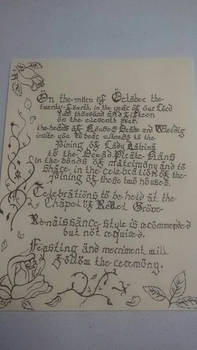 On the morn of October the
twenty-fourth, in the year of our Lord
two thousand and fifteen
on the eleventh hour,
the heads of Houses and
invite you to bear witness to the
joining of Lady Katrina
to the
in the bonds of matrimony and to
share in the celebration of the
joining of these two houses.
Celebrations to be held at the
Chapel of Rebel Grove
Renaissance style is recommended
but not required.
Feasting and merriment will
follow the ceremony.